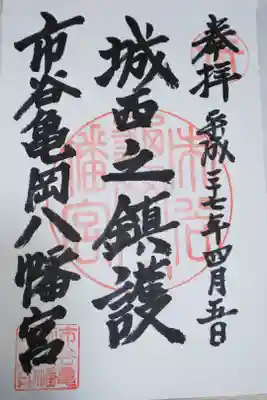 奉拝 平成二十七年四月五日
城西之鎮護
市谷亀岡八幡宮